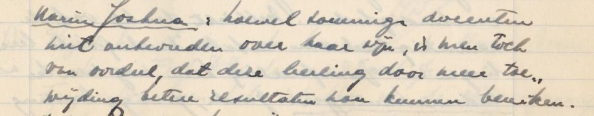 Karin Joshua : hoewel sommige docenten
niet ontevreden over haar zijn, is men toch
van oordeel, dat deze leerling door meer toe„
wijding betere resultaten kan kunnen bereiken.